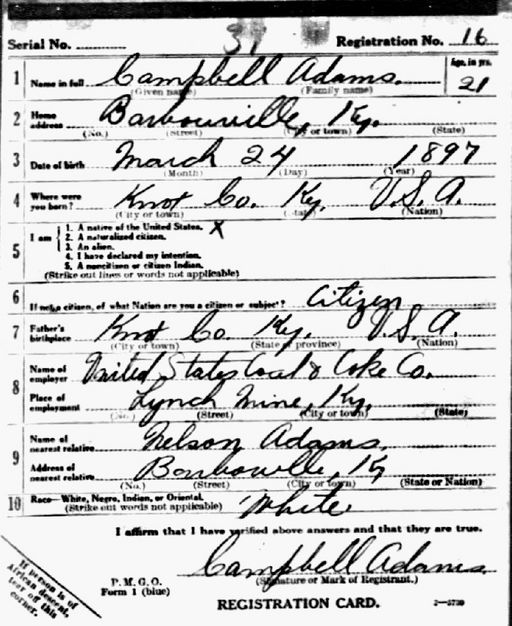 Serial No. 37 Registration No. 16
1 Name in full Campbell Adams. Age, in yrs. 21
(Given name) (Family name)
2 Home address Barbourville, Ky.
(No.) (Street) (City or town) (State)
3 Date of birth March 24 1897
(Month) (Day) (Year)
4 Where were you born? Knox Co. Ky. U.S.A.
(City or town) (State) (Nation)
5 I am
1. A native of the United States. X
2. A naturalized citizen.
3. An alien.
4. I have declared my intention.
5. A noncitizen or citizen Indian.
(Strike out lines or words not applicable)
6 If not a citizen, of what Nation are you a citizen or subject? Citizen
7 Father's birthplace Knox Co. Ky. U.S.A.
(City or town) (State or province) (Nation)
8 Name of employer United States Coal & Coke Co.
Place of employment Lynch Mine, Ky.
(No.) (Street) (City or town) (State)
9 Name of nearest relative Nelson Adams.
Address of nearest relative Barbourville, Ky
(No.) (Street) (City or town) (State or Nation)
10 Race—White, Negro, Indian, or Oriental. White
(Strike out words not applicable)
I affirm that I have verified above answers and that they are true.
Campbell Adams.
(Signature or Mark of Registrant.)
P. M. G. O.
Form 1 (blue)
REGISTRATION CARD. 3—5739
If person is of
African descent,
tear off this
corner.